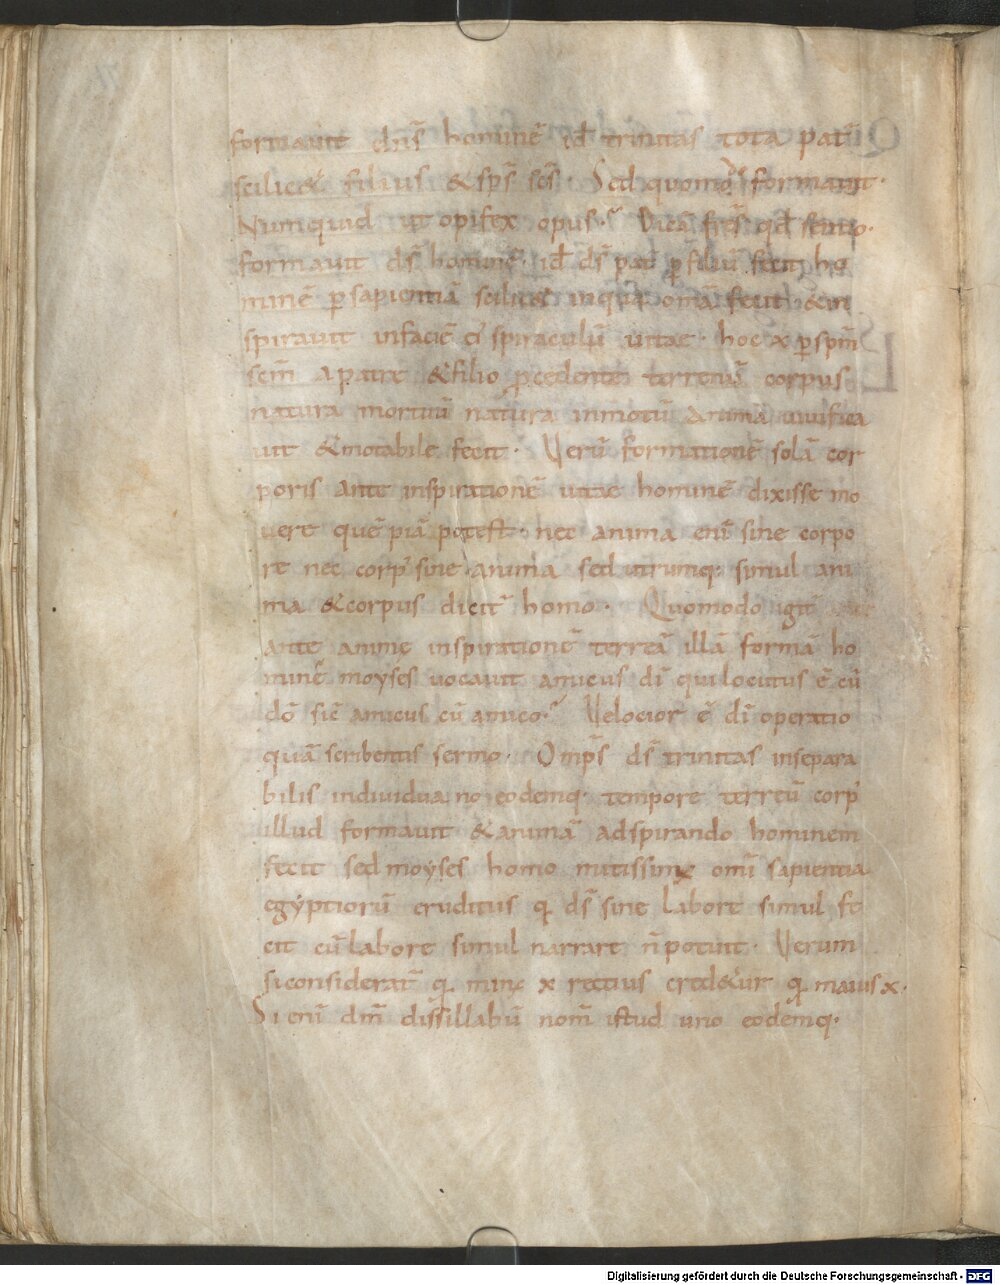 formauit dns̄ hominē id̄ trinitas tota pat̄
scilicet filius & sps̄ scs̄. Sed quomō formauit.
Numquid ut opifex opus. Dicā frs̄ qd̄ sentio.
formauit ds̄ hominē. id̄ ds̄ pat̄ p̄ filiū fecit ho
minē p̄ sapientiā scilicet in qua omā fecit. & in
spirauit in faciē ei spiraculū uitae. hoc x p̄ spm̄
scm̄ a patre & filio p̄cedente terrenū corpus
natura mortuū natura inmotū animā uiuifica
uit & motabile fecit. Verū formationē solā cor
poris ante inspirationē uitae hominē dixisse mo
uere quēpiā potest. nec anima eni sine corpo
re nec corp' sine anima sed utrumq; simul ani
ma & corpus dicit' homo. Quomodo igit'
ante anime inspirationē terreā illā formā ho
minē moyses uocauit amicus dī qui locutus ē cū
dō sic̄ amicus cū amico. Velocior ē dī operatio
quā scribentis sermo. Omps̄ ds̄ trinitas insepara
bilis indiuidua uno eodemq; tempore terreū corp'
illud formauit & animā adspirando hominem
fecit sed moyses homo mitissimus omī sapientia
egyptiorū eruditus q ds̄ sine labore simul fe
cit cū labore simul narrare n̄ potuit. Verum
si consideraret' q minc x rectius credetur q maius x.
Si eni dm̄ dissillabū nom̄ istud uno eodemq;
Digitalisierung gefördert durch die Deutsche Forschungsgemeinschaft - DFG